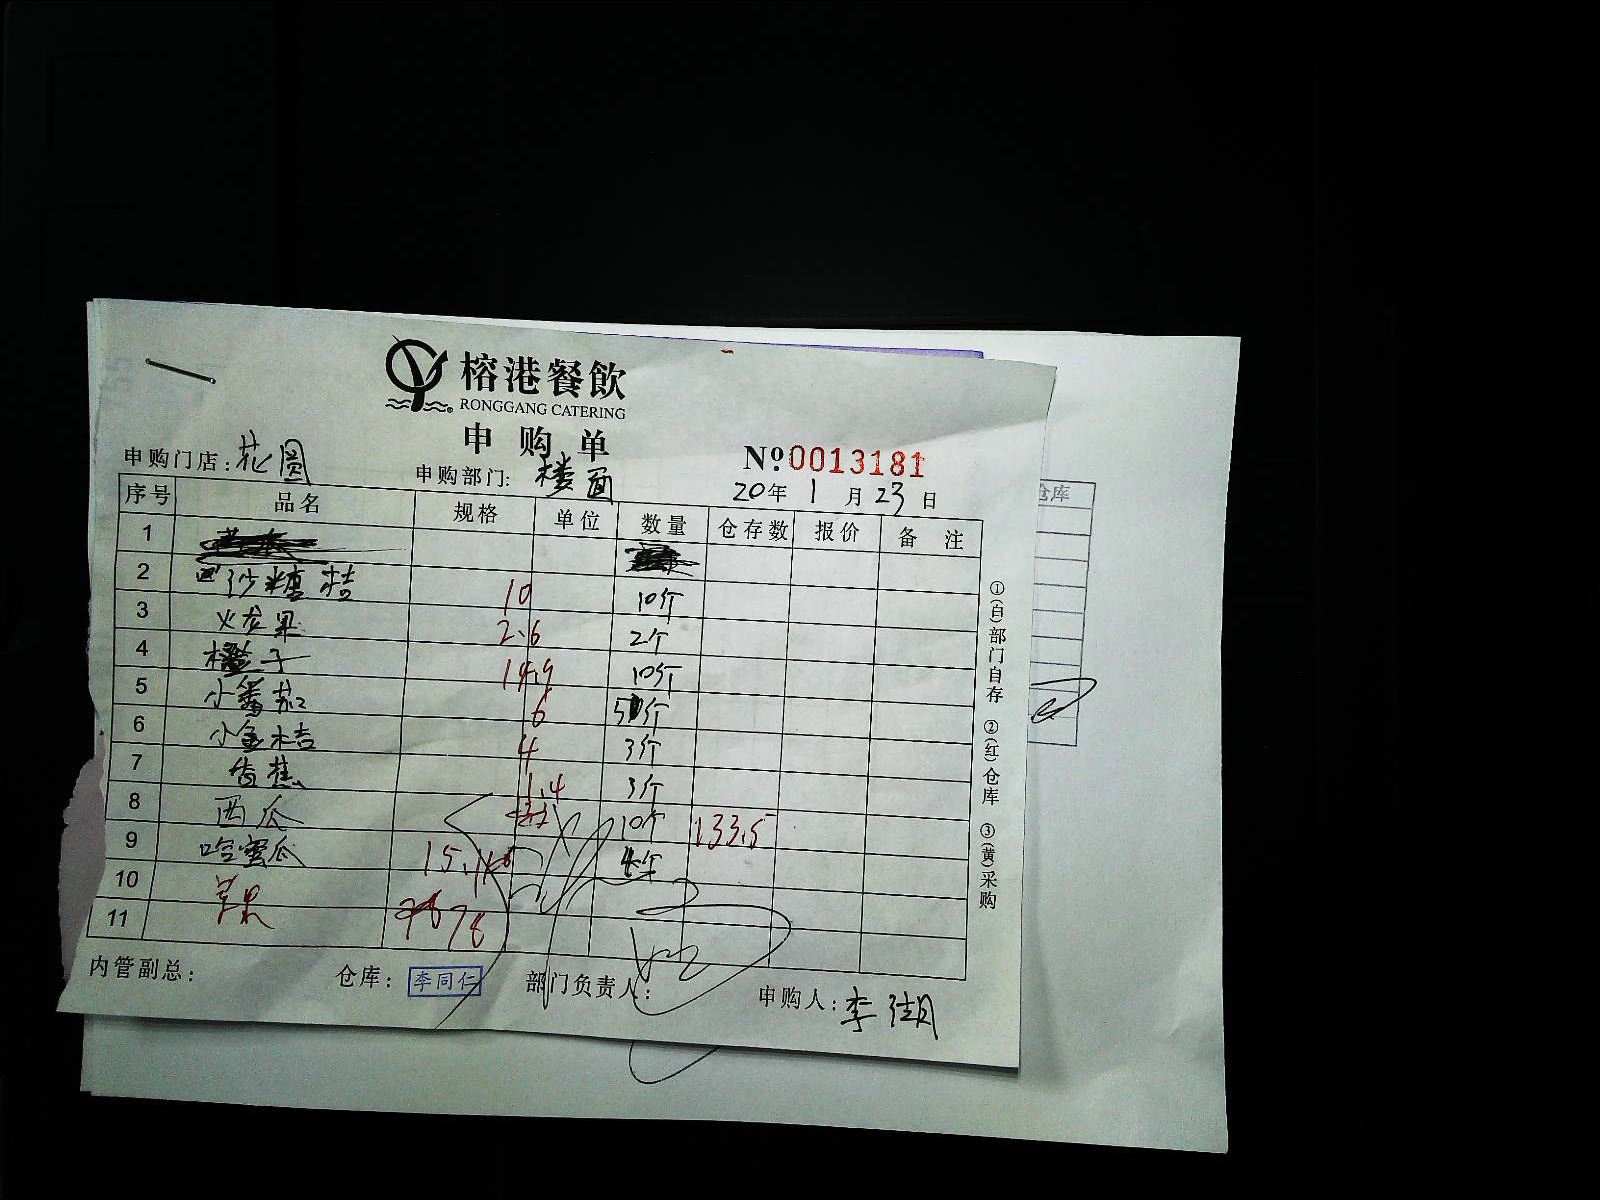 榕港餐飲
RONGGANG CATERING
申购单
申购门店：花圆 申购部门：楼面 Nº0013181
20年1月23日
序号 品名 规格 单位 数量 仓存数 报价 备注
1
2 沙糖桔 10 10个
3 火龙果 2.6 2个
4 橙子 14.9 10个
5 小番茄 6 5个
6 小金桔 4 3个
7 香蕉 1.4 3个
8 西瓜 10个 133.5
9 哈蜜瓜 15. 4个
10 苹果 78
11
内管副总： 仓库：李同仁 部门负责人： 申购人：李
①(白)部门自存 ②(红)仓库 ③(黄)采购
仓库